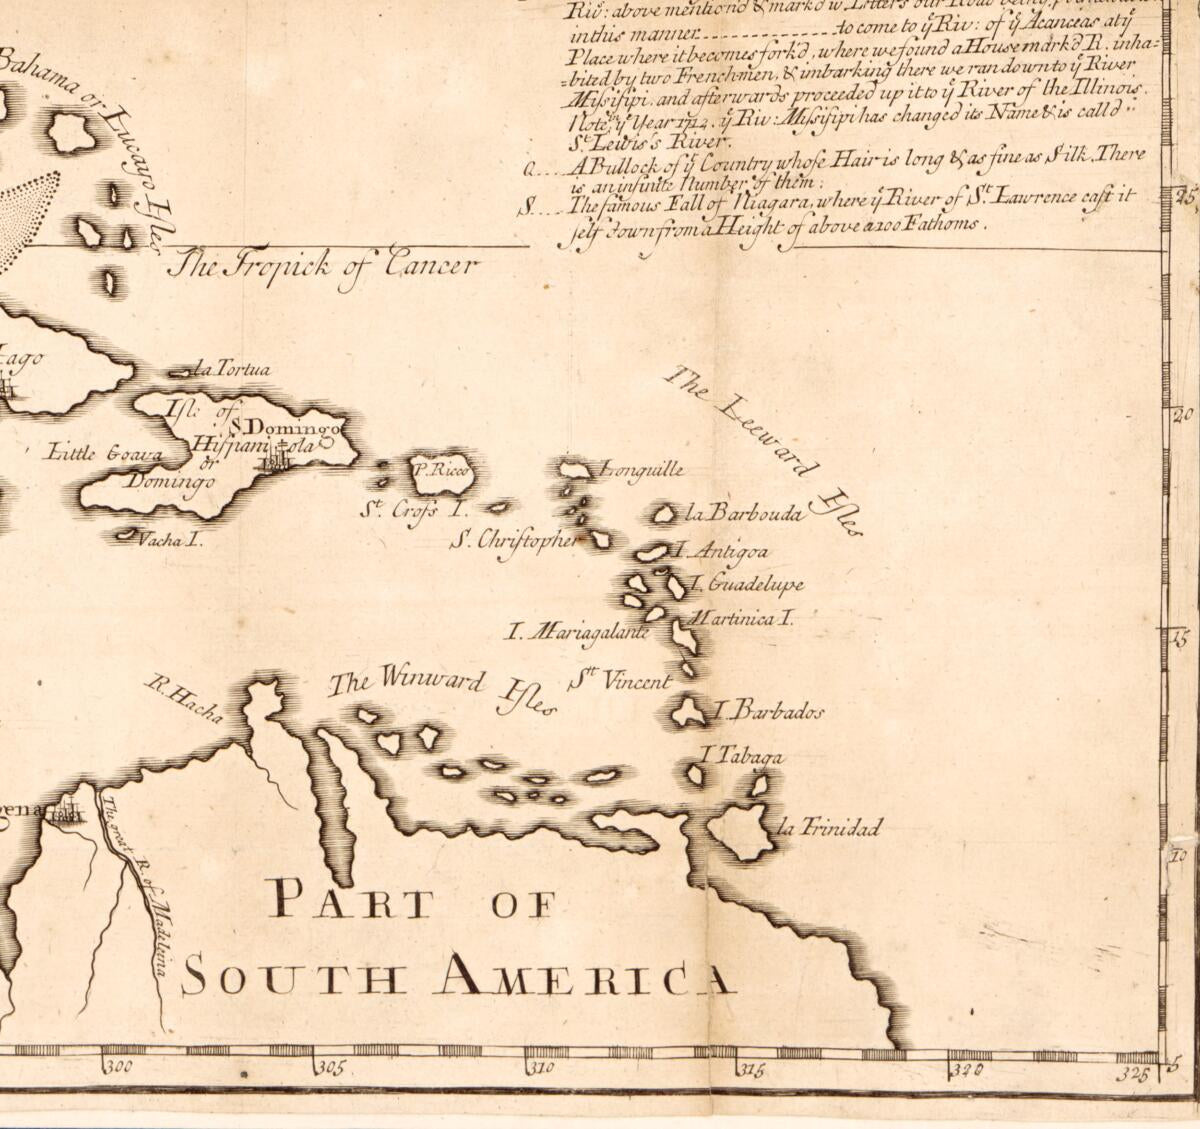 Riv: above mention'd & mark'd wth Letters our Road being
in this manner. . . . . . . . . . . . . . to come to yͤ Riv: of yͤ Acanceas at yͤ
Place where it becomes fork'd, where we found a House mark'd R. inha=
=bited by two Frenchmen, & imbarking there we ran down to yͤ River
Miſsiſipi. and afterwards proceeded up it to yͤ River of the Illinois.
Note, yͤ Year 1712. yͤ Riv: Miſsiſipi has changed its Name & is call'd
St. Lewis's River.
Q.... A Bullock of yͤ Country whoſe Hair is long & as fine as Silk. There
is an infinite Number of them:
S.... The famous Fall of Niagara, where yͤ River of St. Lawrence caſt it
ſelf down from a Height of above a 100 Fathoms.
Bahama or Lucayo Iſles
25
The Tropick of Cancer
iago
la Tortua
The Leeward Iſles
20
Iſle of
S. Domingo
Hiſpaniola
or
Domingo
Little Goava
P. Ricco
Longuille
St. Croſs I.
la Barbouda
Vacha I.
S. Chriſtopher
I. Antigoa
I. Guadelupe
Martinica I.
I. Mariagalante
15
The Winward Iſles
Stt Vincent
R. Hacha
I. Barbados
I Tabaga
gena
The great R. of Madeleina
la Trinidad
10
PART OF
SOUTH AMERICA
300
305
310
315
320
325
5